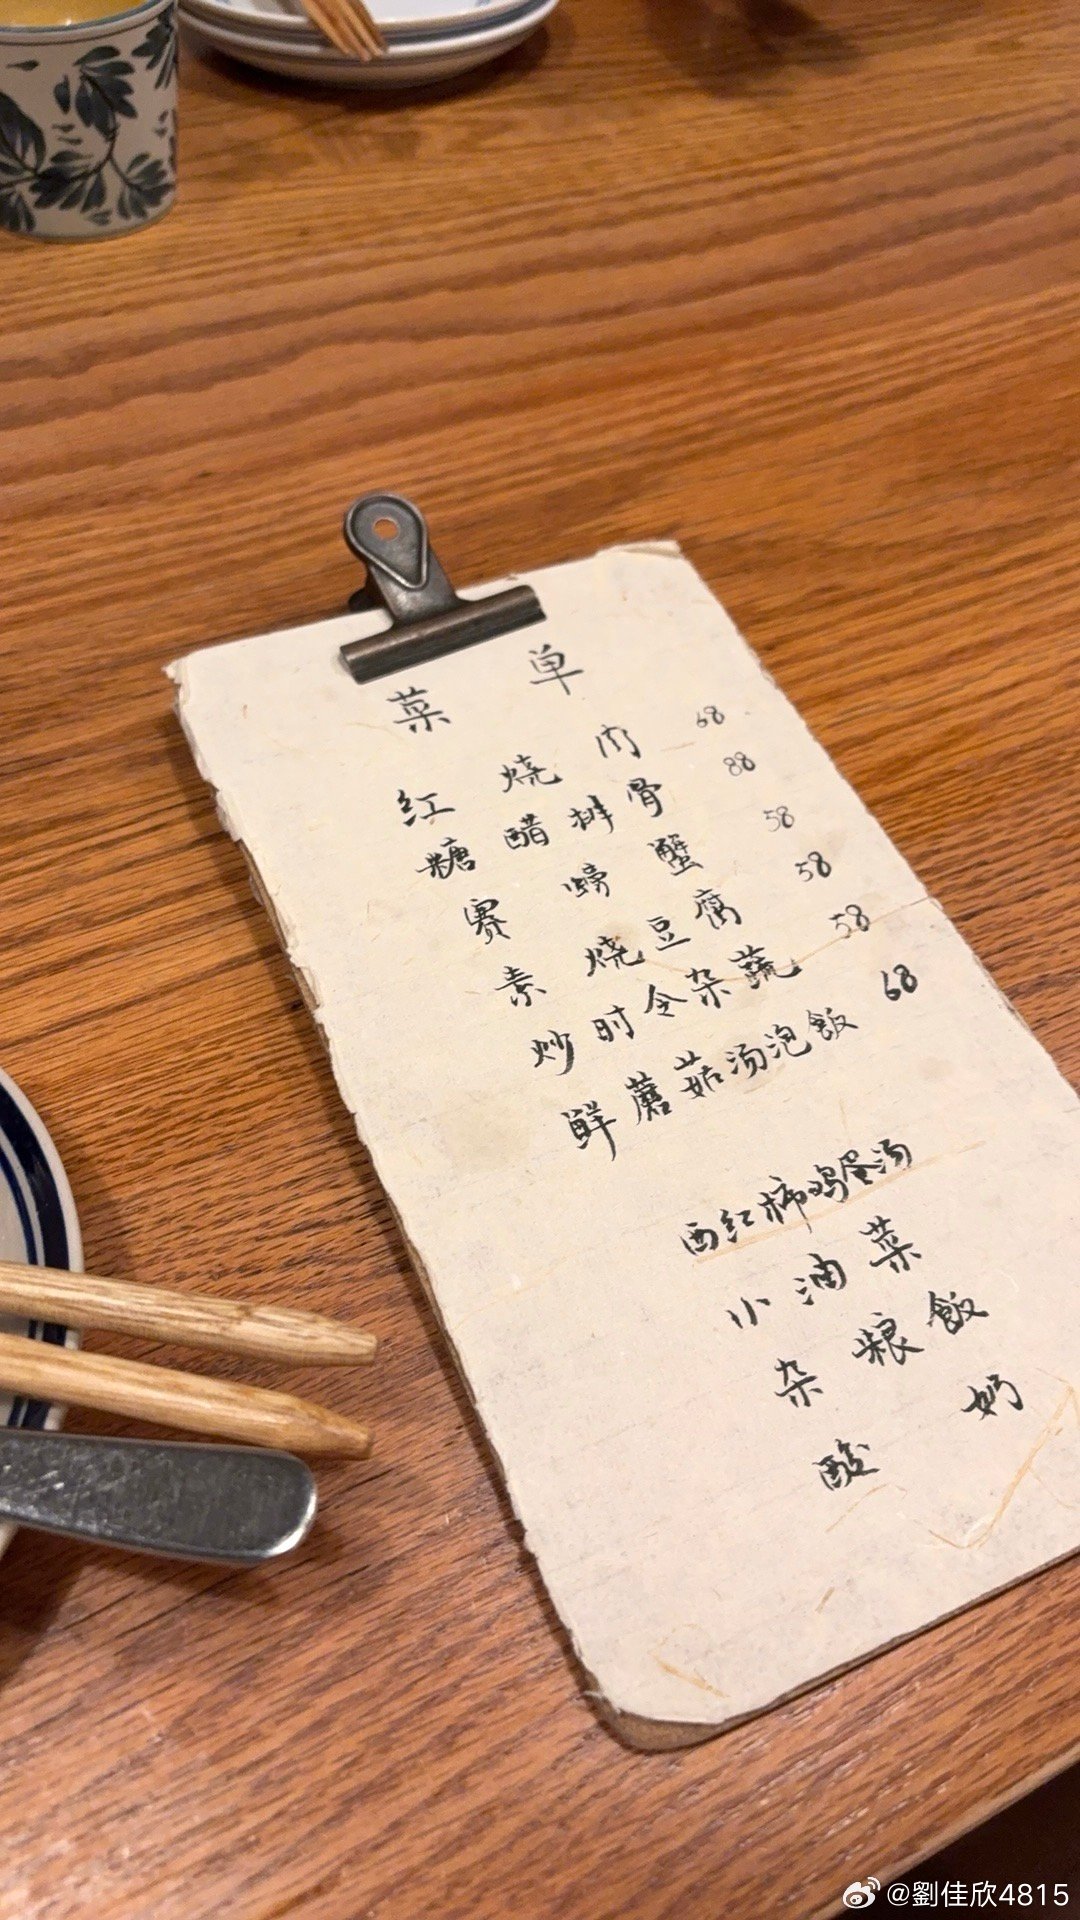 菜单
红烧肉 68
糖醋排骨 88
赛螃蟹 58
素烧豆腐 58
炒时令杂蔬 58
鲜蘑菇汤泡飯 68
西红柿鸡蛋汤
小油菜
杂粮飯
酸奶
@劉佳欣4815